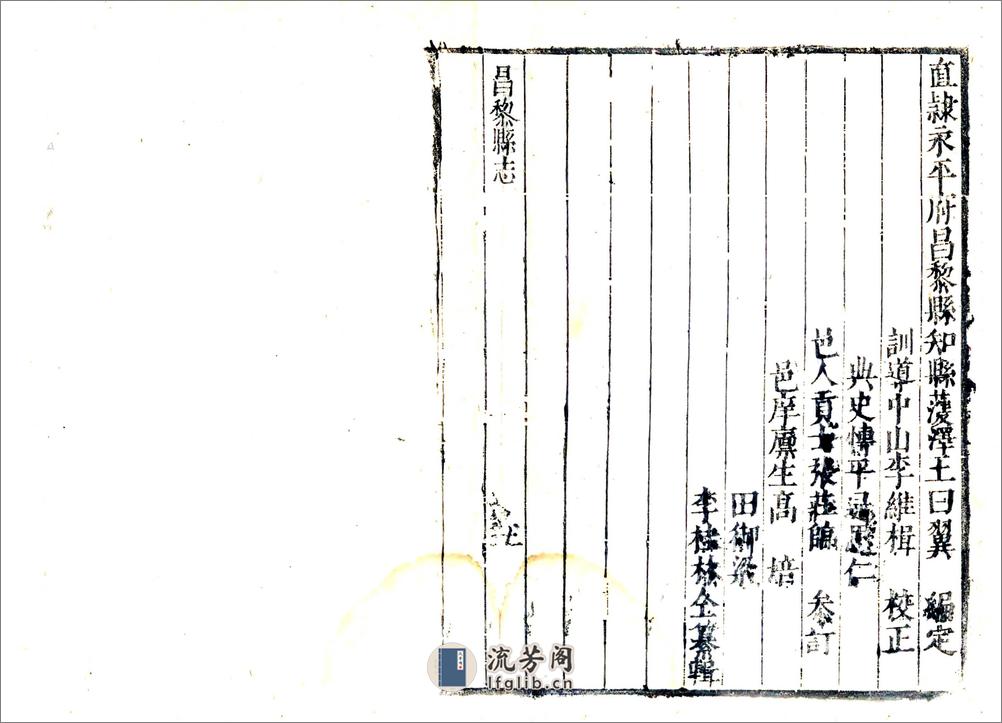 直隸永平府昌黎縣知縣菠澤王曰翼 編定
訓導中山李維楫 校正
典史博平 仁
邑人貢士張莊臨 叅訂
邑庠廪生高 培
田御梁
李桂林仝纂輯
昌黎縣志
流芳阁
lfglib.cn